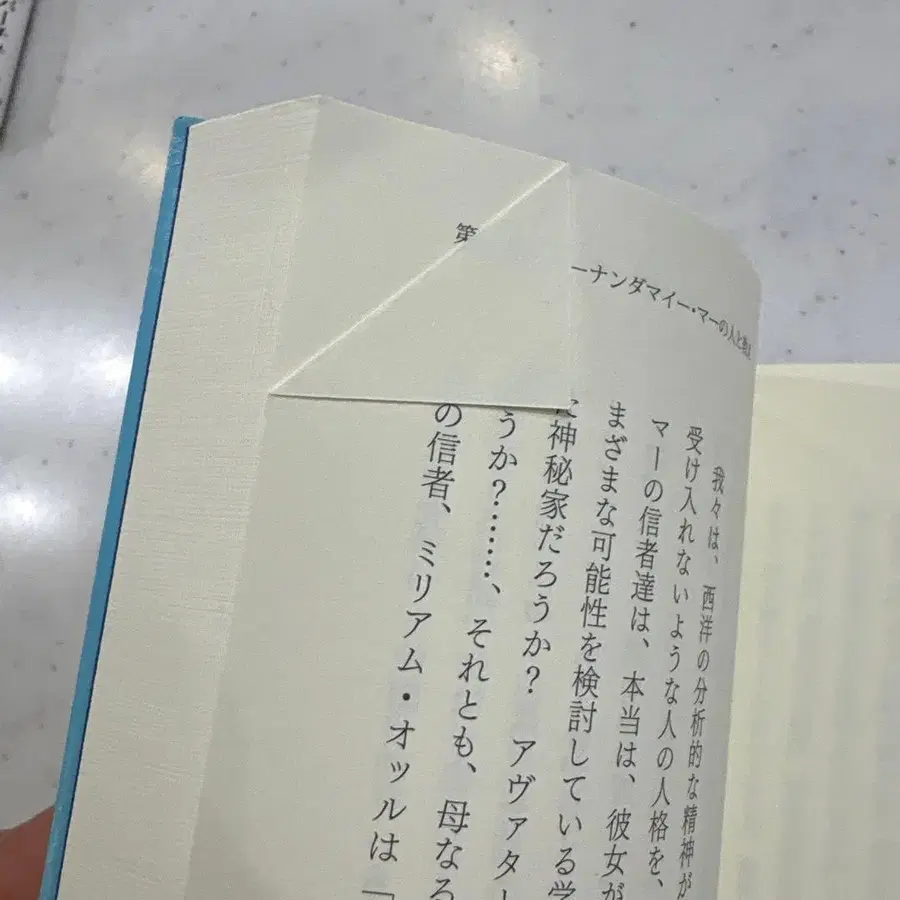 第
ーナンダマイー・マーの人と教え
我々は、西洋の分析的な精神が
受け入れないような人の人格を、
マーの信者達は、本当は、彼女が
まざまな可能性を検討している学
に神秘家だろうか？ アヴァター
うか？……、それとも、母なる
の信者、ミリアム・オッルは「